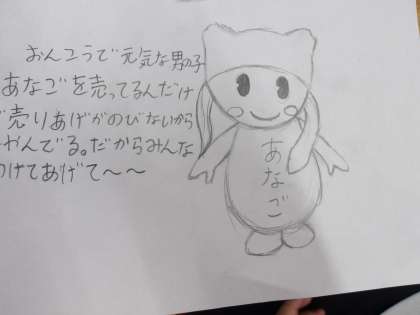 おんこうで元気な男の子
あなごを売ってるんだけ
売りあげがのびないから
やんでる。だからみんな
けてあげて～～
あなご